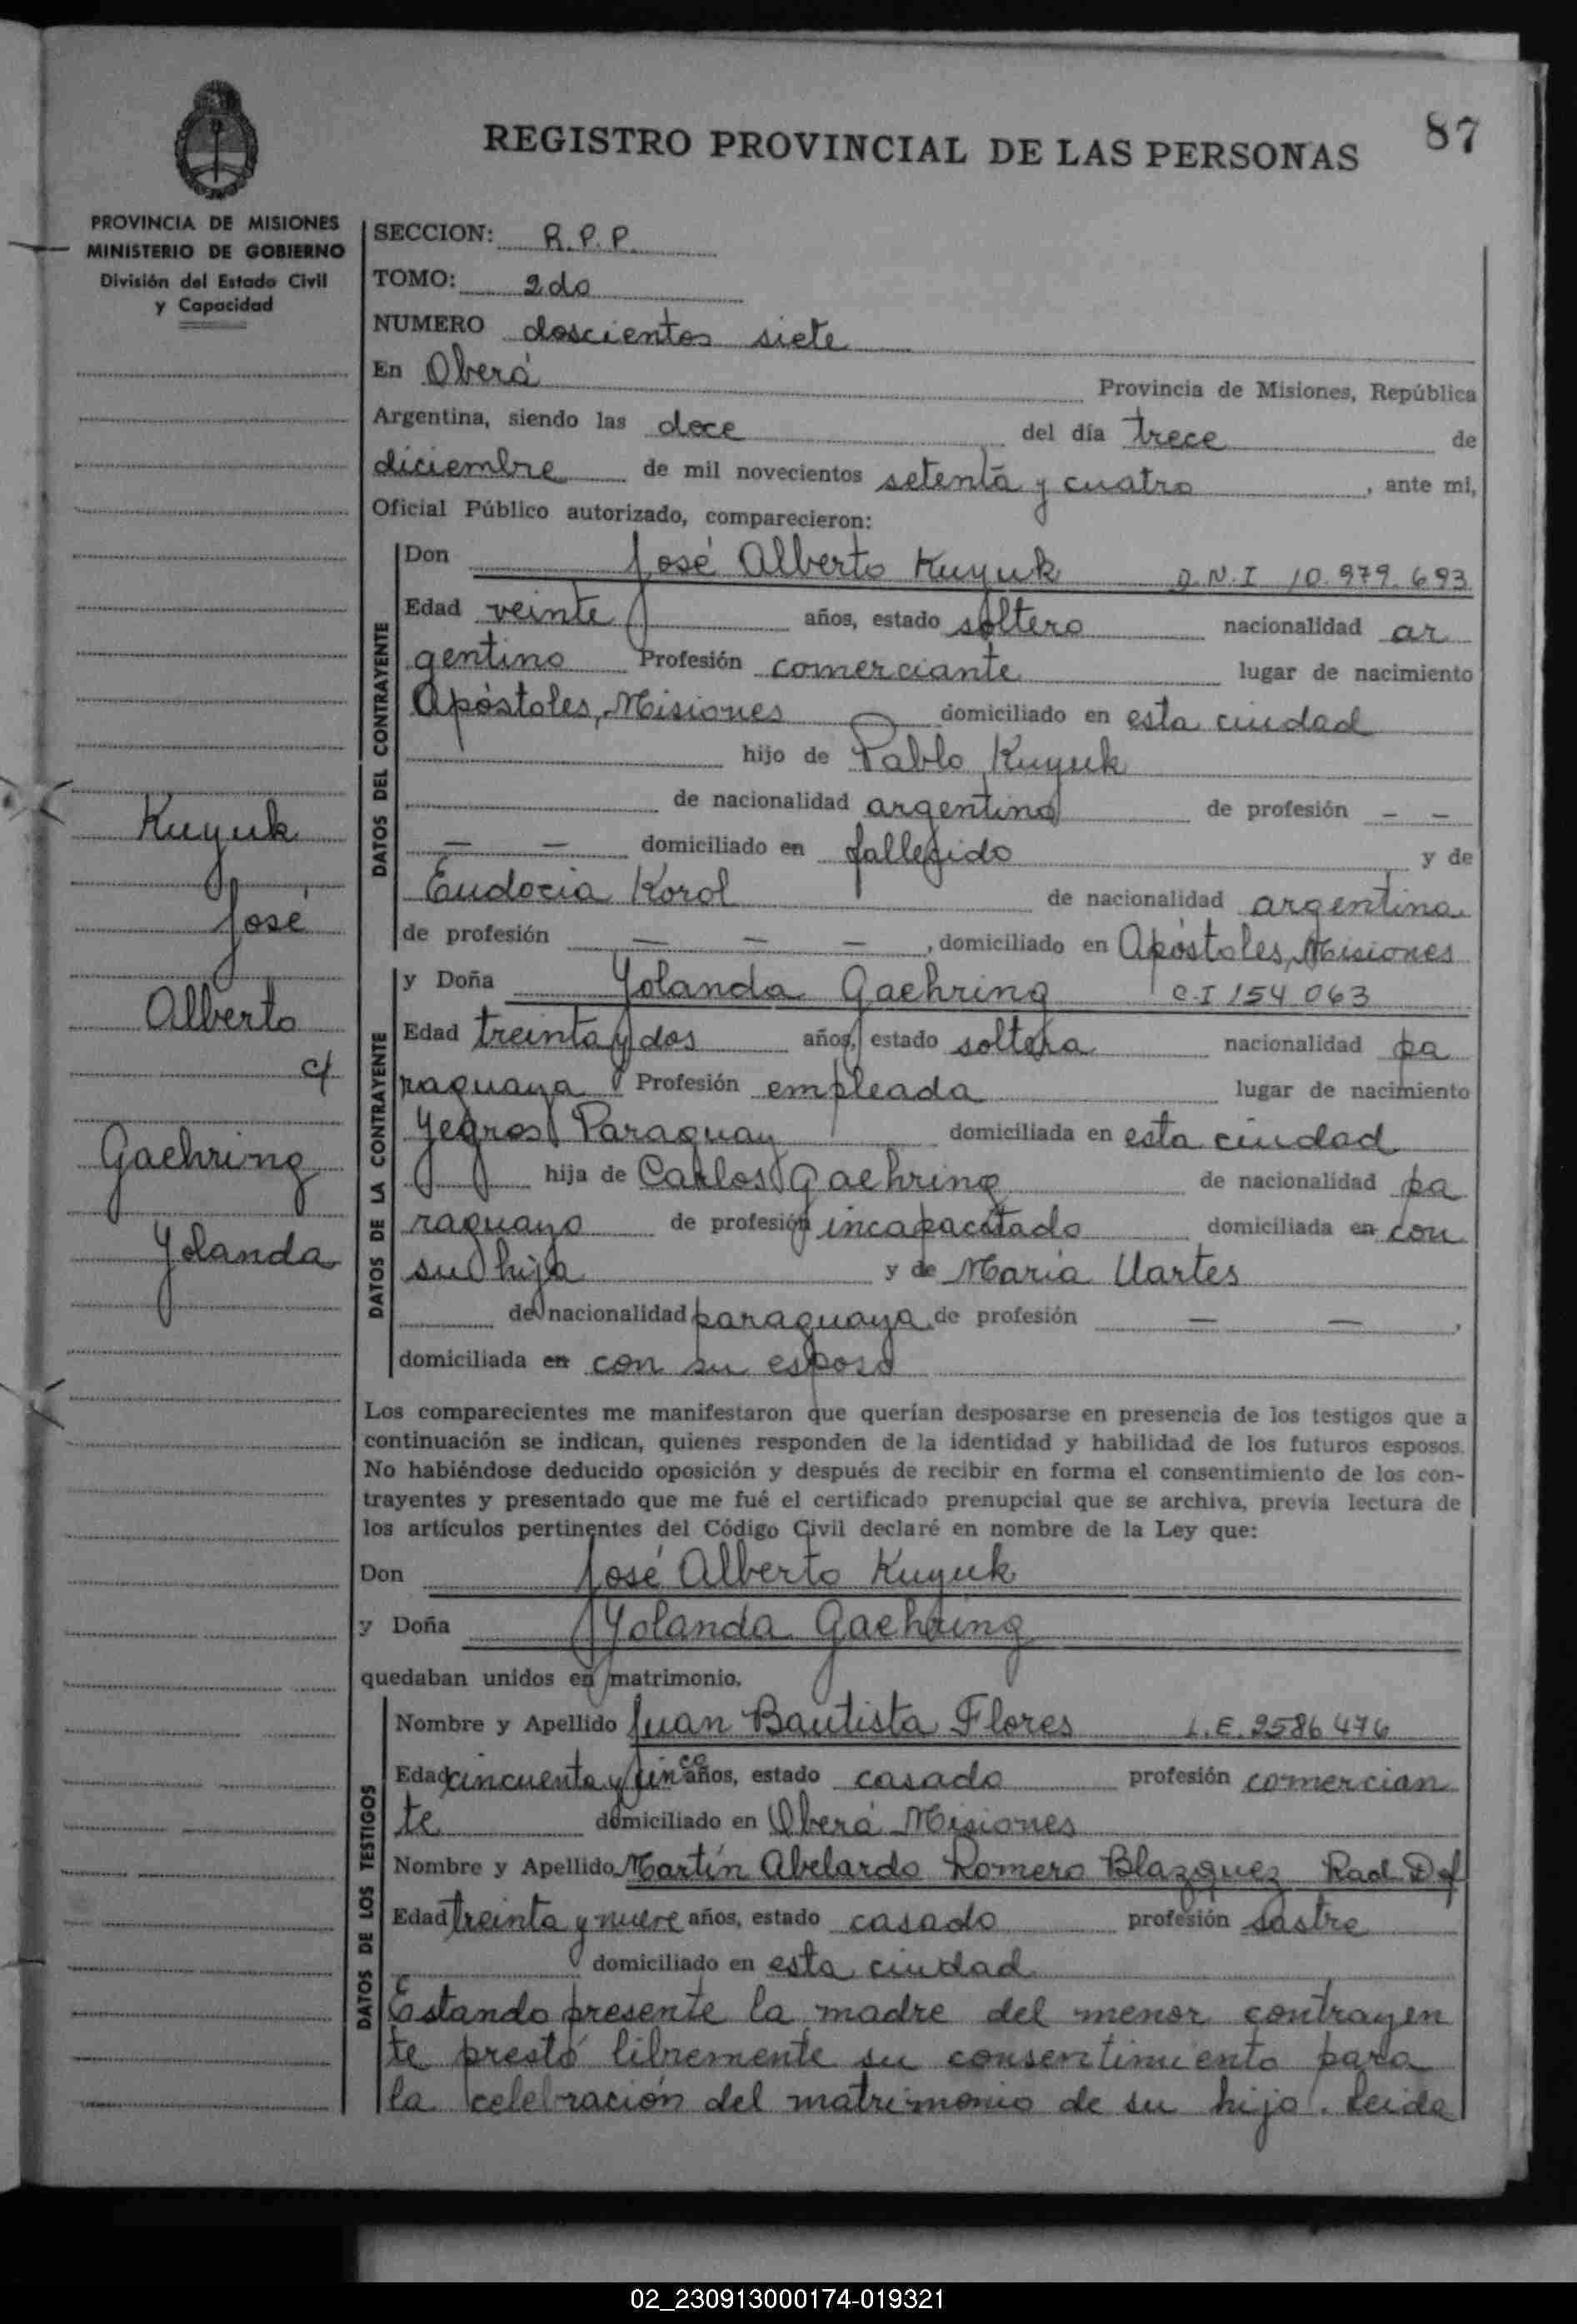 87
REGISTRO PROVINCIAL DE LAS PERSONAS
PROVINCIA DE MISIONES
MINISTERIO DE GOBIERNO
División del Estado Civil
y Capacidad
Kuyuk
José
Alberto
c/
Gaehring
Yolanda
SECCION: R.P.P.
TOMO: 2do
NUMERO doscientos siete
En Oberá Provincia de Misiones, República
Argentina, siendo las doce del día trece de
diciembre de mil novecientos setenta y cuatro, ante mi,
Oficial Público autorizado, comparecieron:
DATOS DEL CONTRAYENTE
Don José Alberto Kuyuk D.N.I 10.979.693
Edad veinte años, estado soltero nacionalidad ar
gentino Profesión comerciante lugar de nacimiento
Apóstoles, Misiones domiciliado en esta ciudad
hijo de Pablo Kuyuk
de nacionalidad argentino de profesión – –
– – domiciliado en fallecido y de
Eudocia Korol de nacionalidad argentina
de profesión – – –, domiciliado en Apóstoles, Misiones
DATOS DE LA CONTRAYENTE
y Doña Yolanda Gaehring C.I 154.063
Edad treinta y dos años, estado soltera nacionalidad pa
raguaya Profesión empleada lugar de nacimiento
Yegros Paraguay domiciliada en esta ciudad
hija de Carlos Gaehring de nacionalidad pa
raguayo de profesión incapacitado domiciliada en con
su hija y de María Uartes
de nacionalidad paraguaya de profesión – –,
domiciliada en con su esposo
Los comparecientes me manifestaron que querían desposarse en presencia de los testigos que a
continuación se indican, quienes responden de la identidad y habilidad de los futuros esposos.
No habiéndose deducido oposición y después de recibir en forma el consentimiento de los con-
trayentes y presentado que me fué el certificado prenupcial que se archiva, previa lectura de
los artículos pertinentes del Código Civil declaré en nombre de la Ley que:
Don José Alberto Kuyuk
y Doña Yolanda Gaehring
quedaban unidos en matrimonio.
DATOS DE LOS TESTIGOS
Nombre y Apellido Juan Bautista Flores L.E. 2586476
Edad cincuenta y cinco años, estado casado profesión comercian
te domiciliado en Oberá Misiones
Nombre y Apellido Martín Abelardo Romero Blazquez Rad. Def
Edad treinta y nueve años, estado casado profesión sastre
domiciliado en esta ciudad
Estando presente la madre del menor contrayen
te prestó libremente su consentimiento para
la celebración del matrimonio de su hijo. Leida
02_230913000174-019321